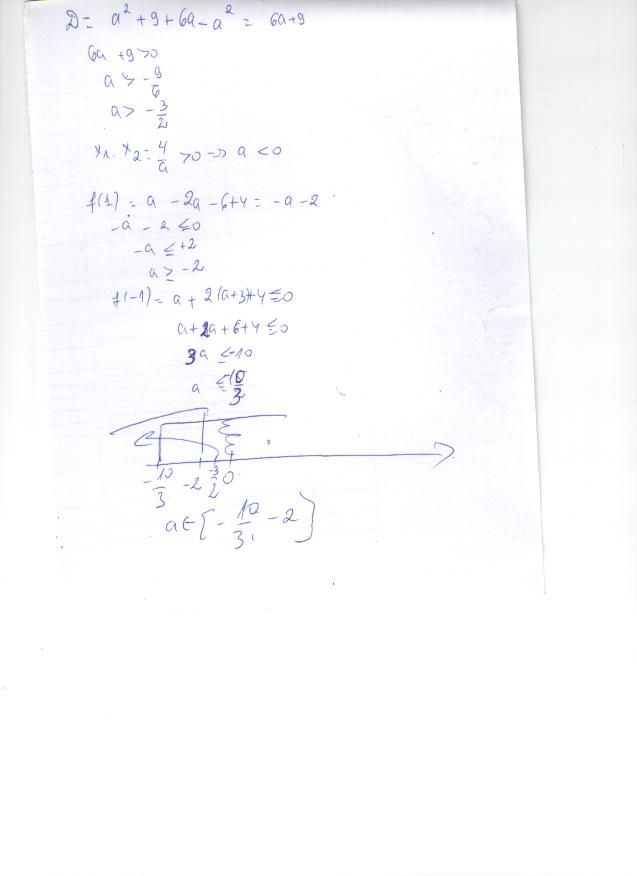 D = a² + 9 + 6a - a² = 6a+9
6a + 9 > 0
a > - 9/6
a > - 3/2
x₁ · x₂ = 4/a > 0 => a < 0
f(1) = a - 2a - 6 + 4 = -a - 2
-a - 2 ≤ 0
-a ≤ +2
a ≥ -2
f(-1) = a + 2(a+3)+4 ≤ 0
a + 2a + 6 + 4 ≤ 0
3a ≤ -10
a ≤ -10/3
-10/3 -2 -3/2 0
a ∈ [-10/3, -2]